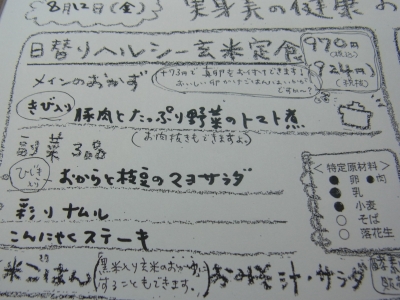 8月12日(金)
実身美の健康お
日替りヘルシー玄米定食
970円
(税込)
924円
(税抜)
メインのおかず
+73円で
できます!
きび入り 豚肉とたっぷり野菜のトマト煮
副菜3品
(お肉抜きもできますよ。)
ひじき入り おからと枝豆のマヨサラダ
彩りナムル
こんにゃくステーキ
<特定原材料>
● 卵 ●肉
● 乳
● 小麦
○ そば
○ 落花生
米ごはん (黒米入り玄米のおかゆに
することもできます。)
おみそ汁・サラダ
酵素